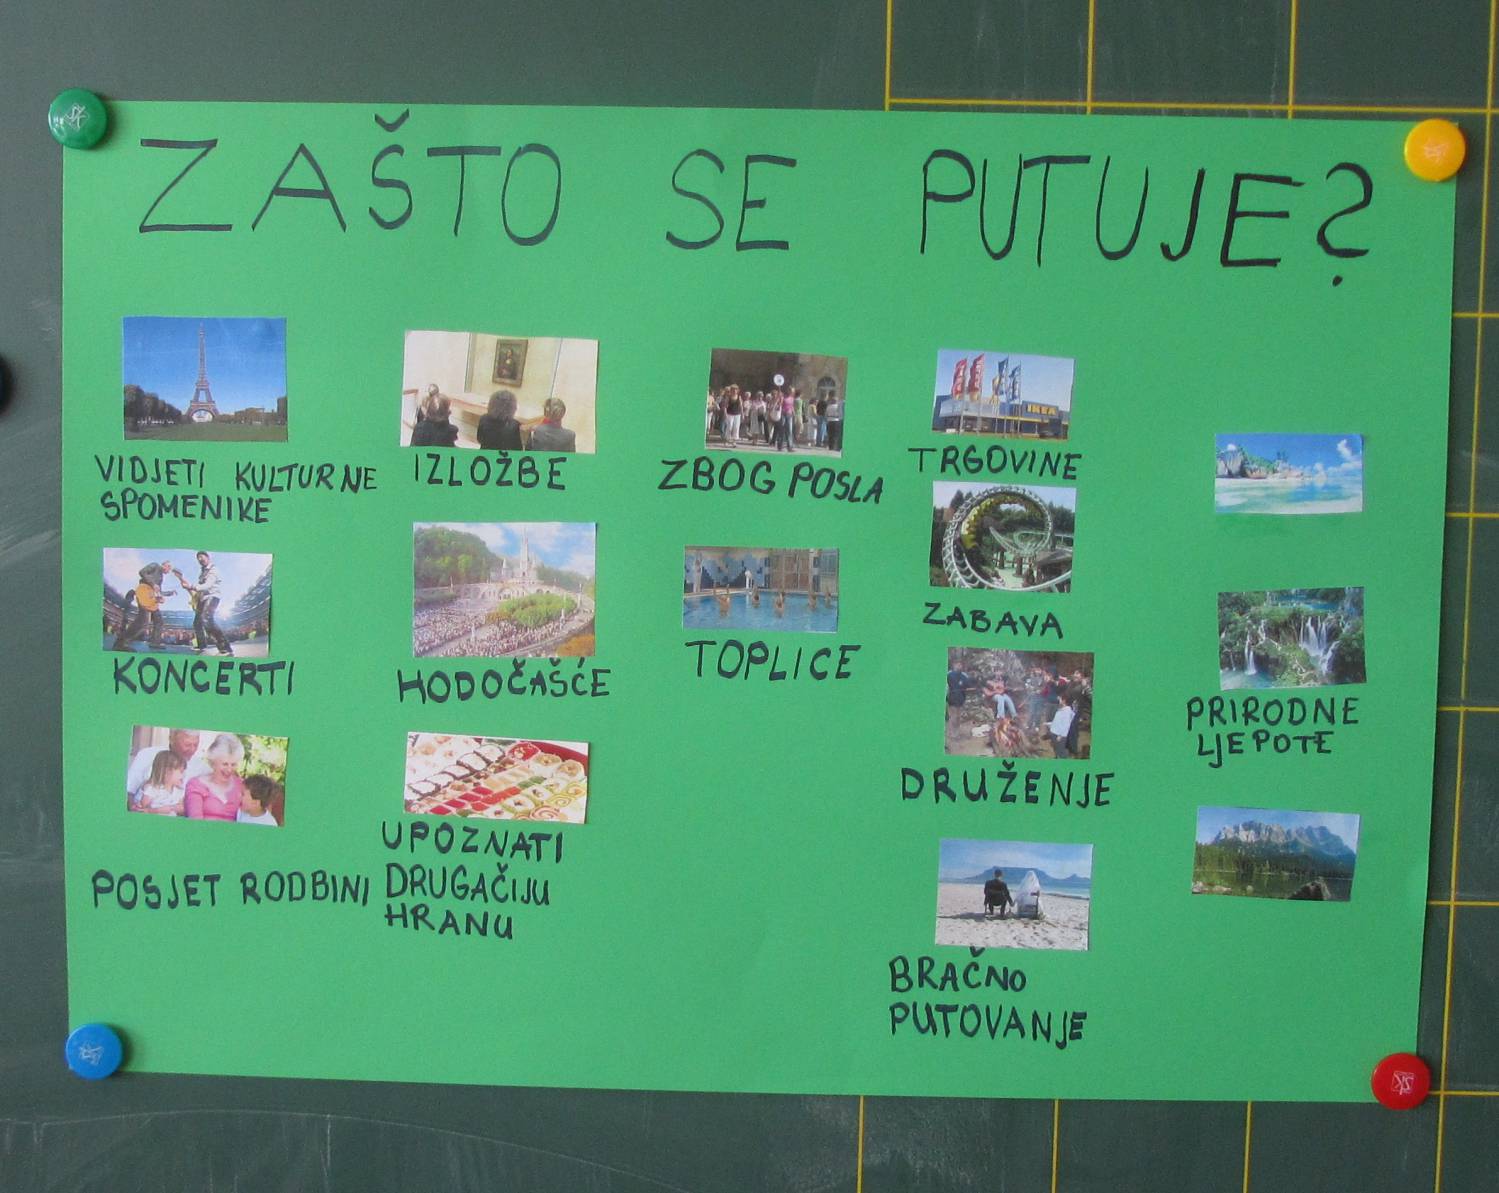 ZAŠTO SE PUTUJE?
VIDJETI KULTURNE
SPOMENIKE
IZLOŽBE
ZBOG POSLA
IKEA
TRGOVINE
KONCERTI
HODOČAŠĆE
TOPLICE
ZABAVA
PRIRODNE
LJEPOTE
DRUŽENJE
POSJET RODBINI
UPOZNATI
DRUGAČIJU
HRANU
BRAČNO
PUTOVANJE